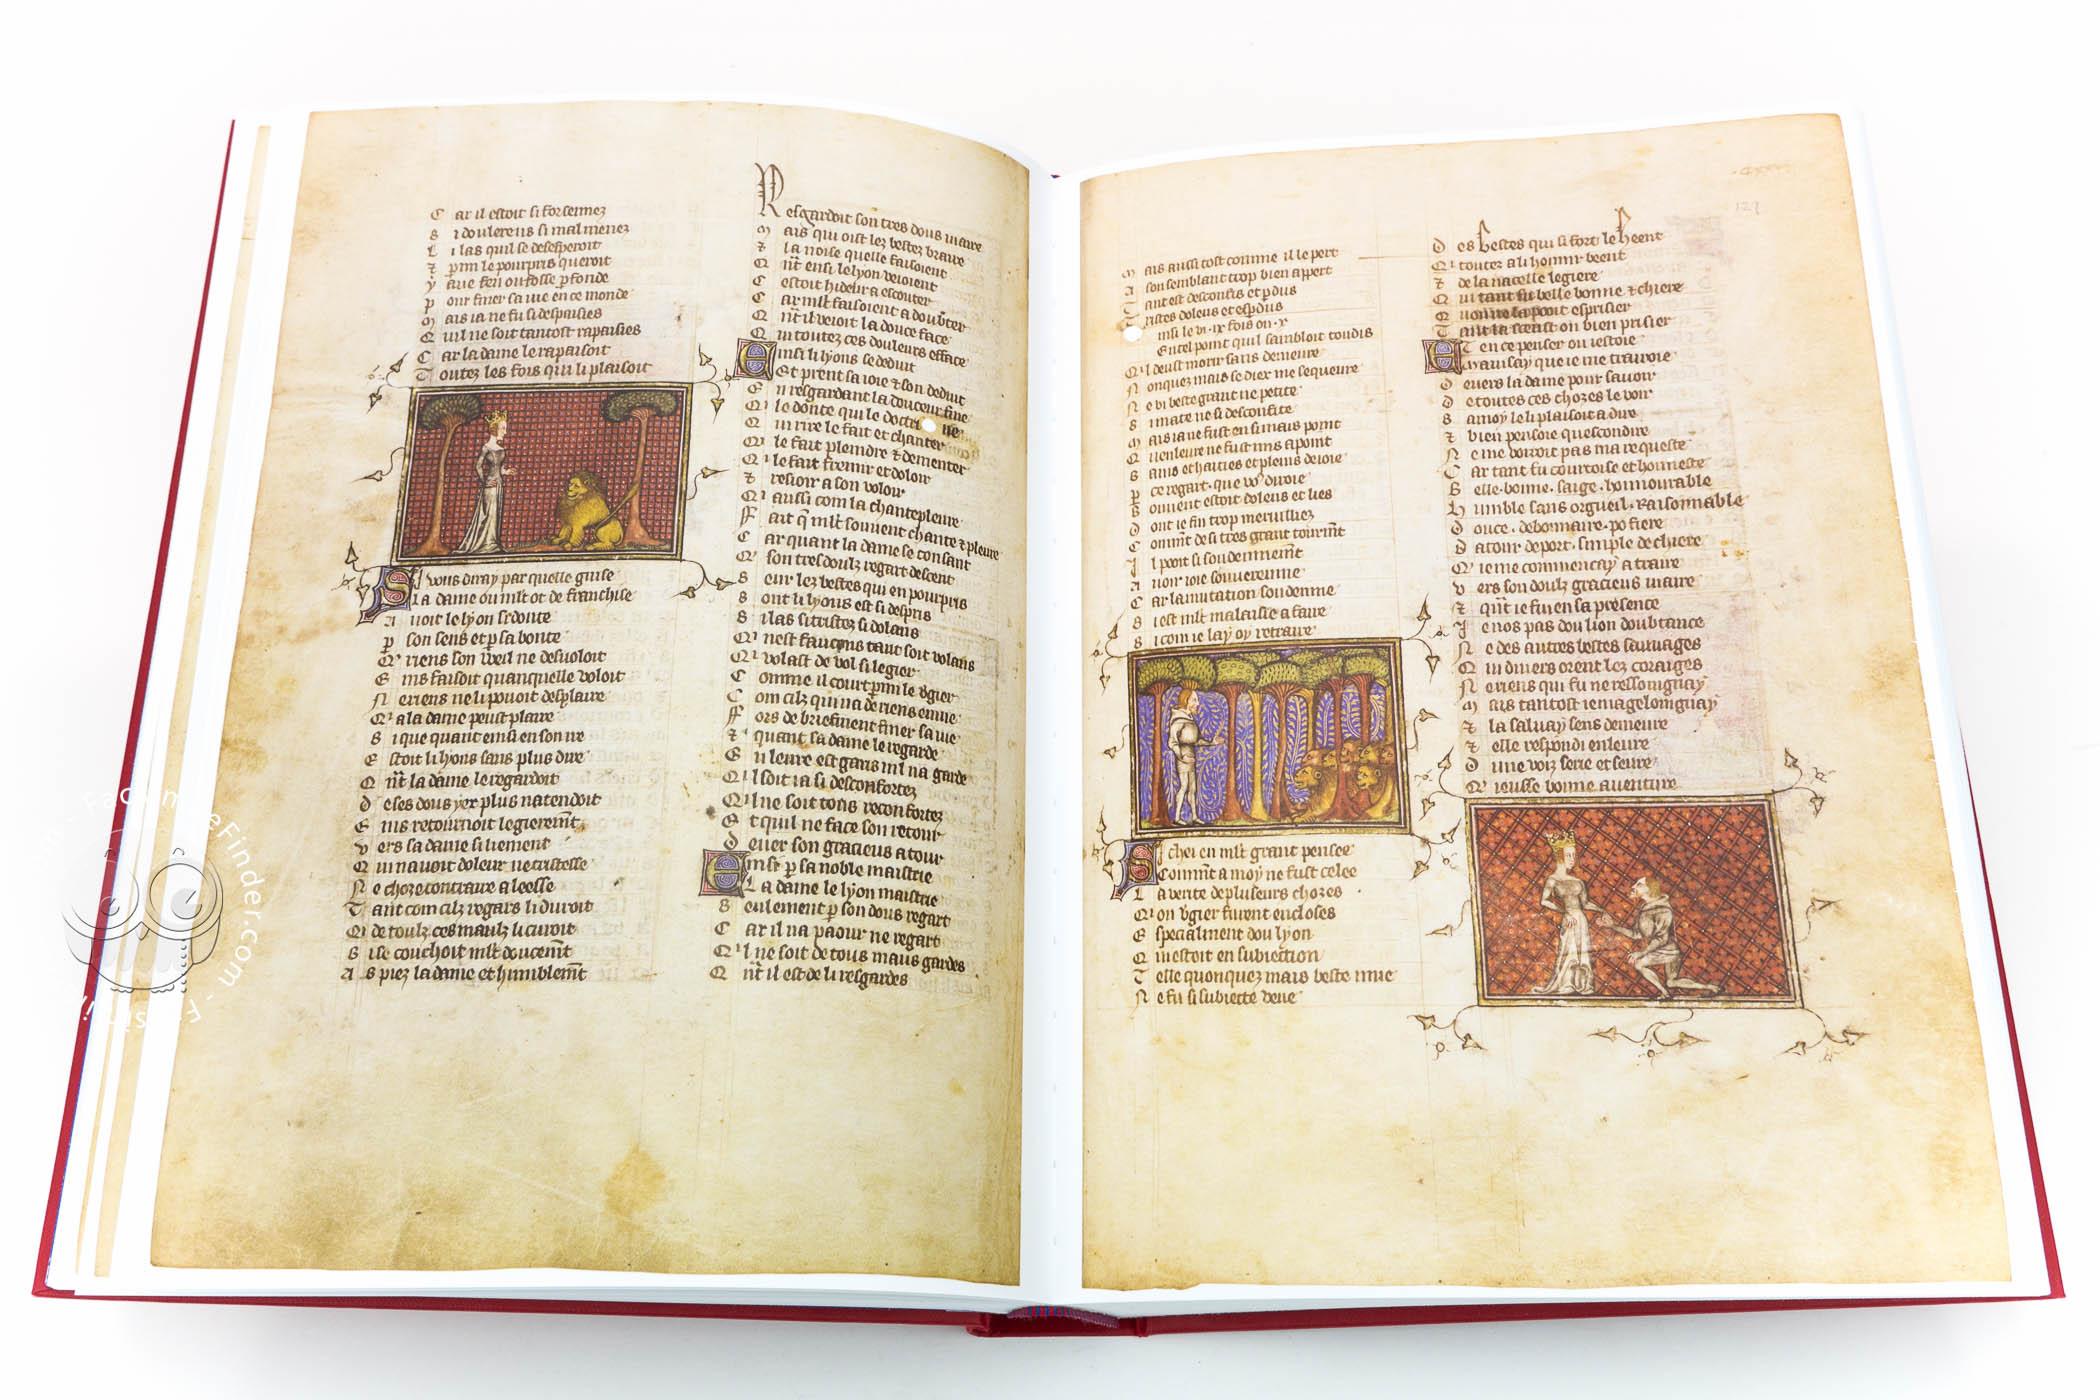 C ar il estoit si forsennez
S i doulereus si mal menez
L i las quil se desesperoit
⁊ p̲mi le pourpris queroit
y aue feu ou fosse p̲fonde
P our finer sa vie en ce monde
M ais ia ne fu si despaisies
Q uil ne soit tantost rapaisies
C ar la dame le rapaisoit
T outez les fois quil li plaisoit
S I vous diray par quelle guise
La dame ou mlt ot de franchise
A uoit le lyon si donte
P̲ son sens et p̲ sa bonte
Q riens son weil ne desuoloit
E ins faisoit quanquelle voloit
N e riens ne li pouoit desplaire
Q a la dame peust plaire
S i que quant einsi en son ire
E stoit li lyons sans plus dire
Q nt la dame le regardoit
D e ses dous yex plus natendoit
E ins retournoit legieremt
V ers sa dame si liement
Q ui nauoit doleur ne tristesse
N e choze contraire a leesse
T ant com cilz regars li duroit
Q de toulz ces maulz li curoit
S i se couchoit mlt doucemt
A s piez la dame et humblemt
R esgardoit son tres dous viaire
M ais qui oist lez bestez braire
⁊ la noise quelle faisoient
Q nt ensi le lyon veoient
C estoit hideur a escouter
C ar mlt faisoient a doubter
Q nt il veoit la douce face
Q ui toutez ces douleurs efface
E insi li lyons se deduit
Et prent sa ioie ⁊ son deduit
E n resgardant la douceur fine
Q le donte qui le doctrine
Q ui rire le fait et chanter
Q le fait pleindre ⁊ dementer
Q le fait fremir et doloir
⁊ resioir a son voloir
Q aussi com la chantepleure
F ait q̄ mlt souuent chante ⁊ pleure
C ar quant la dame se consant
Q son tres doulz regart descent
S eur lez bestes qui en pourpris
S ont li lyons est si despris
S i las si tristez si dolans
Q nest faucons tant soit volans
Q volast de vol si legier
C omme il court p̲mi le vgier
C om cilz qui na de riens enuie
F ors de briefment finer sa vie
⁊ quant sa dame le regarde
E n leure est garis inl na garde
Q il soit ia si desconfortez
Q il ne soit tous reconfortez
E t quil ne face son retour
D euer son gracieus atour
E insi p̲ sa noble maistrie
La dame le lyon maistrie
S eulement p̲ son dous regart
C ar il na paour ne regart
Q il ne soit de tous maus gardes
Q nt il est de li resgardes
M ais aussi tost comme il le pert
A son semblant trop bien appert
T ant est desconfis et p̲dus
T ristes doleus et esp̲dus
insi le vi .ix. fois ou .x.
En tel point quil sambloit toudis
Q il deust morir sans demeure
N onquez mais se diex me sequeure
N e vi beste grant ne petite
S i mate ne si desconfite
M ais ia ne fust en si mais point
Q uenleure ne fust mis a point
S ains et haities et pleins de ioie
P̲ ce regart que vo9 diroie
S ouuent estoit doleus et lies
D ont ie fui trop merueilliez
C ommt de si tres grant tourmt
I l pooit si soudeinnemt
A uoir ioie souuereinne
C ar la mutation soudeinne
S i est mlt malaisie a faire
S i com ie lay oy retraire
S I cheï en mlt grant pensee
Commt a moy ne fust celee
L a verite de pluseurs chozes
Q ou vgier furent encloses
E specialment dou lyon
Q ui estoit en subiection
T elle quonquez mais beste mue
N e fu si subiecte veue
.cxxvii.
127
D es bestes qui si fort le heent
Q toutez a li honnir beent
⁊ de la nacelle legiere
Q ui tant fu belle bonne ⁊ chiere
Q uon ne la pooit esprisier
T ant la sceust on bien prisier
E T en ce penser ou iestoie
Mauisay que ie me trairoie
D euers la dame pour sauoir
D e toutes ces chozes le voir
S a moy le li plaisoit a dire
⁊ bien pensoie quescondire
N e me vorroit pas ma requeste
C ar tant fu courtoise et honneste
B elle. bonne. saige. honnourable
H umble sans orgueil. raisonnable
D ouce. debonnaire. po fiere
D atour de port. simple de chiere
Q ie me commencay a traire
V ers son doulz gracieus viaire
⁊ qut ie fui en sa presence
I e nos pas dou lion doubtance
N e des autres bestes sauuages
Q ui diuers orent lez coraiges
N e riens qui fu ne ressoingnay
M ais tantost ie magelongnay
⁊ la saluay sens demeure
⁊ elle respondi enleure
D une voiz serie et seure
Q ieusse bonne auenture
FacsimileFinder.com